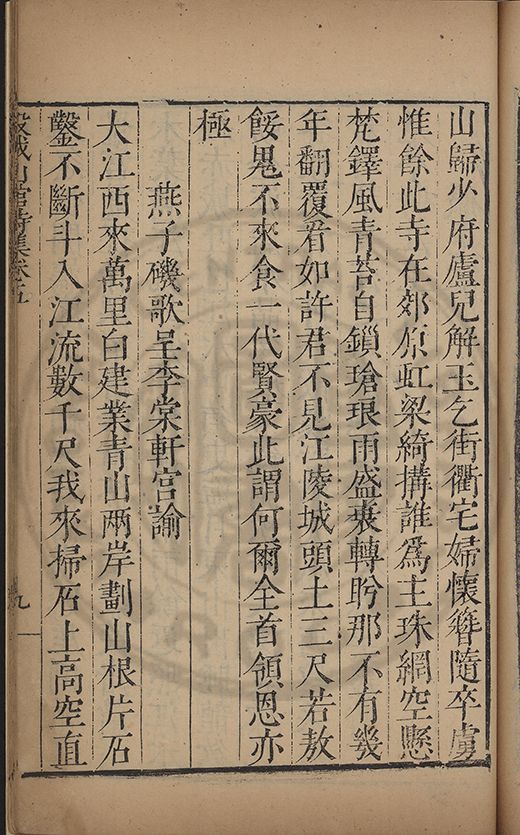 山歸少府廬兒解玉乞街衢宅婦懷簪隨卒虜
惟餘此寺在郊原虹梁綺搆誰為主珠網空懸
梵鐸風青苔自鎖瑲琅雨盛衰轉盻那不有幾
年翻覆看如許君不見江陵城頭土三尺若敖
餒鬼不來食一代賢豪此謂何爾全首領恩亦
極
燕子磯歌呈李棠軒宮諭
大江西來萬里白建業青山兩岸劃山根片石
鑿不斷斗入江流數千尺我來掃石上高空直
城山館詩集卷五
九